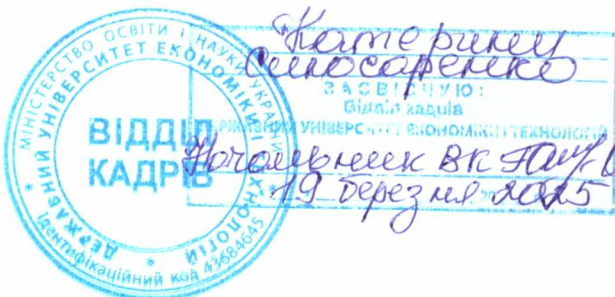 МІНІСТЕРСТВО ОСВІТИ І НАУКИ УКРАЇНИ
ДЕРЖАВНИЙ УНІВЕРСИТЕТ ЕКОНОМІКИ І ТЕХНОЛОГІЙ
Ідентифікаційний код 43684645
ВІДДІЛ
КАДРІВ
Катерини
ЗАСВІДЧУЮ:
Відділ кадрів
УНІВЕРСИТЕТ ЕКОНОМІКИ І ТЕХНОЛОГІЙ
Начальник ВК
19 березня 2025